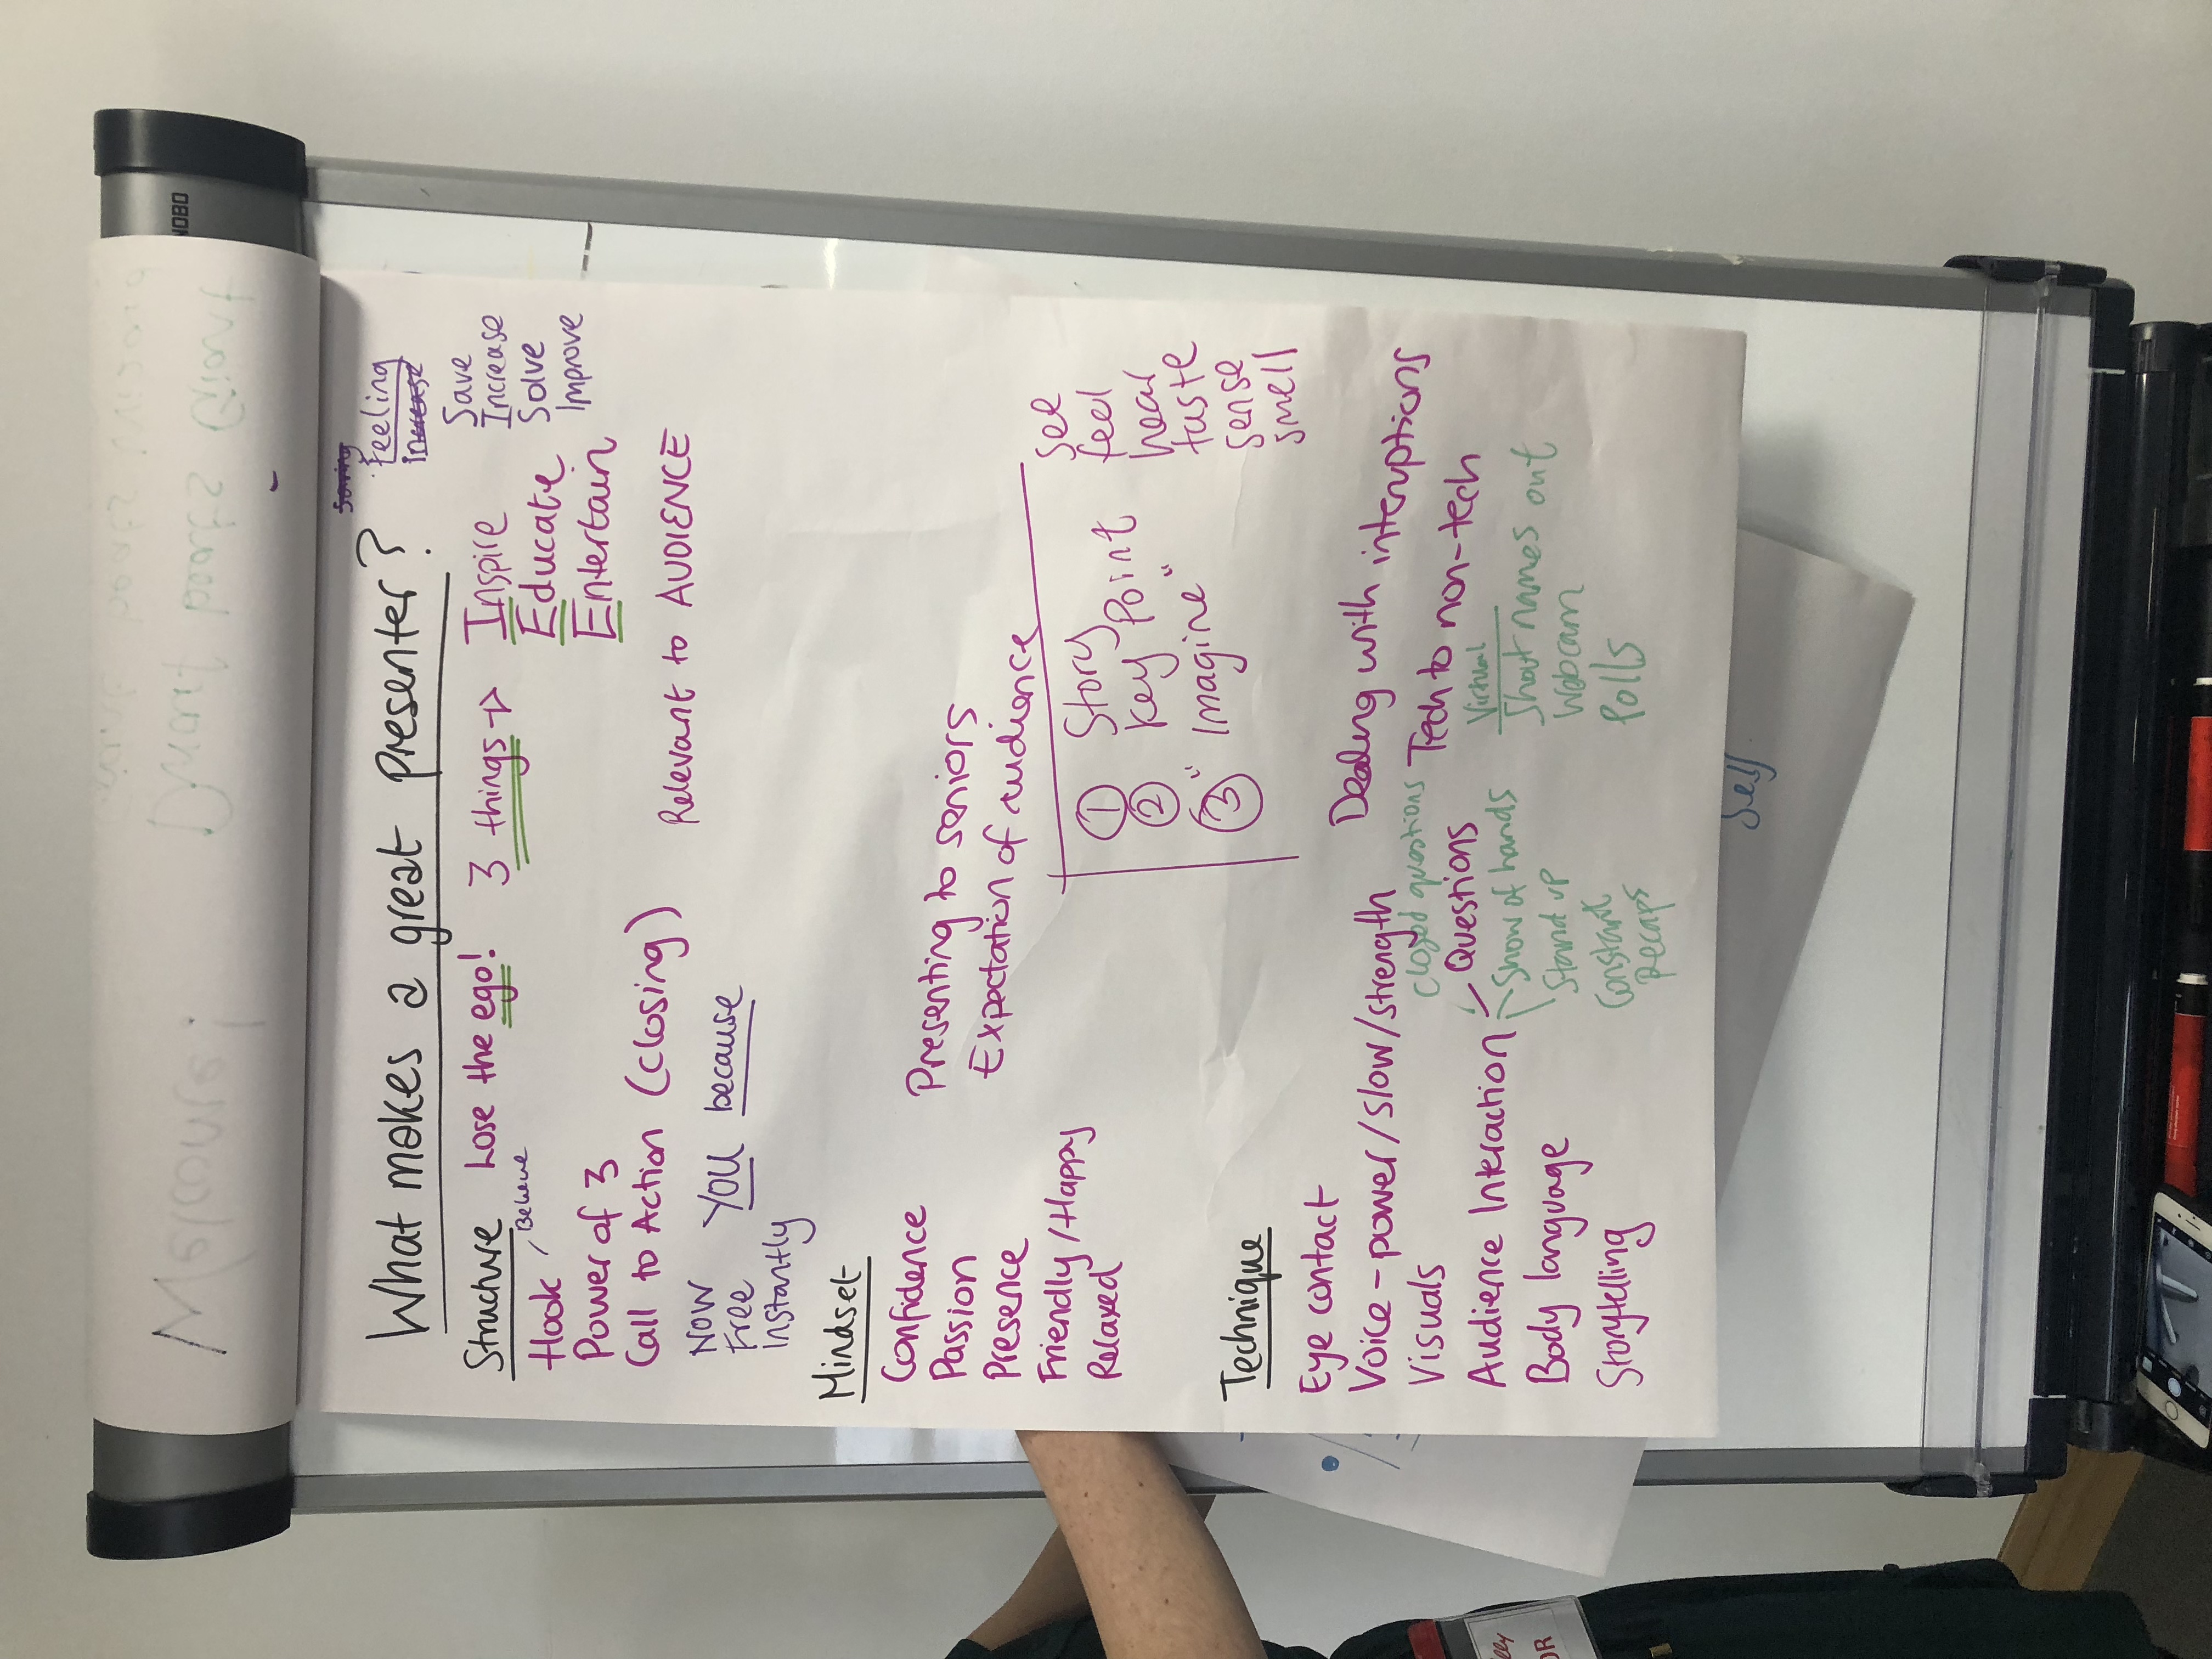 Welcome!
Dwarf beats Giant
NOBO
Saving
Feeling
Increase
What makes a great presenter?
Save
Increase
Solve
Improve
Structure
Lose the ego!
3 things → Inspire
Educate
Entertain
Hook / Believe
Power of 3
Call to Action (closing)
Relevant to AUDIENCE
Now
Free
Instantly
YOU because
Mindset
Confidence
Passion
Presence
Friendly/Happy
Relaxed
Presenting to seniors
Expectation of audience
1 Story
2 Key Point
3 "Imagine"
see
feel
hear
taste
sense
smell
Technique
Eye contact
Voice - power/slow/strength
Visuals
Audience Interaction
Body language
Storytelling
Closed questions
Questions
Show of hands
Stand up
Constant
Recaps
Dealing with interuptions
Tech to non-tech
Virtual
Shout names out
Webcam
Polls
Self